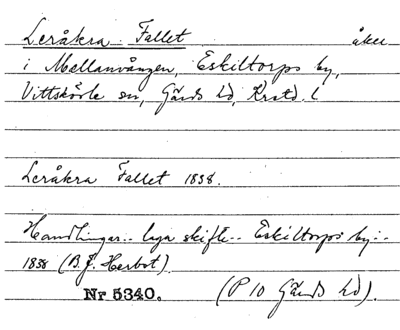 Leråkra Fallet åker
i Mellanvången, Eskiltorps by,
Vittskövle sn, Gärds hd, Krstd. l
Leråkra Fallet 1838.
Handlingar.. laga skifte.. Eskiltorps by..
1838 (B.J. Herbst).
Nr 5340. (P 10 Gärds hd).